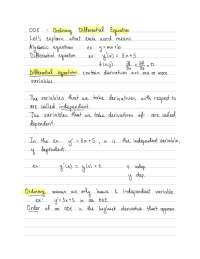 ODE : Ordinary Differential Equation
Let's explain what each word means.
Algebraic equations ex: y = mx + b
Differential equation ex: y'(x) = 2x + 5
Differential equation contain derivatives w.r.t one or more
variables.
The variables that we take derivatives with respect to
are called independent.
The variables that we take derivatives of are called
dependent.
In the ex. y' = 2x + 5, x is the independent variable,
y dependent.
ex: y'(x) =
Ordinary means we only have 1 independent variable.
ex: y' = 2x + 5 is an ODE.
Order of an ODE is the highest derivative that appears.